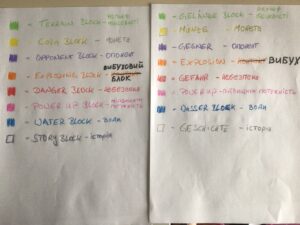 - TERRAIN BLOCK -
- COIN BLOCK - МОНЕТА
- OPPONENT BLOCK - ОПОНЕНТ
ВИБУХОВИЙ
- EXPLOSING BLOCK - БЛОК
- DANGER BLOCK - НЕБЕЗПЕКА
- POWER UP BLOCK -
- WATER BLOCK - ВОДИ
- STORY BLOCK - історія
- GELÄNDE BLOCK -
- MÜNZE - МОНЕТА
- GEGNER - ОПОНЕНТ
- EXPLOSION - ВИБУХ
- GEFAHR - НЕБЕЗПЕКА
- POWER UP -
- WASSER BLOCK - ВОДИ
- GESCHICHTE - історія